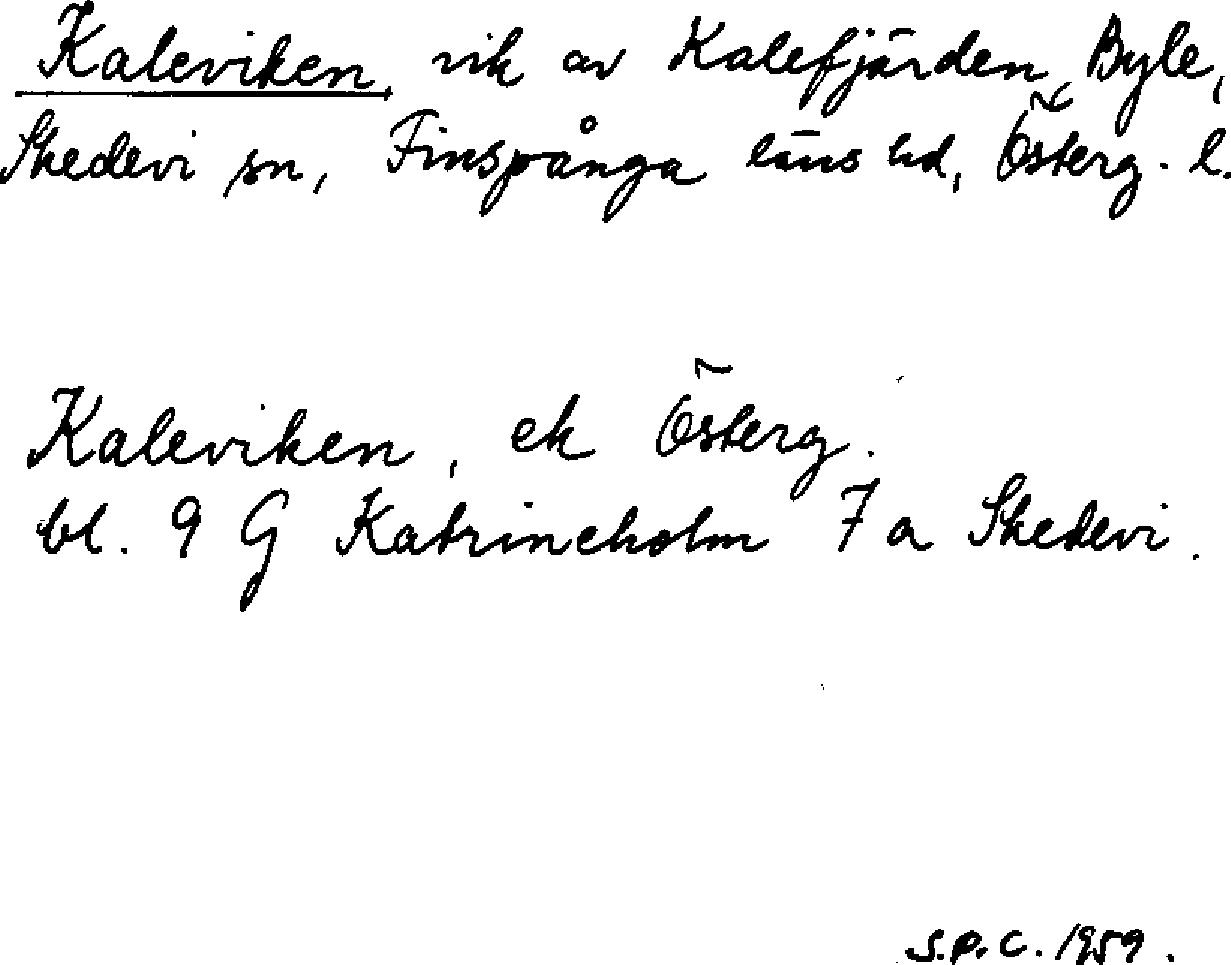 Kaleviken, vik av Kalefjärden, Byle,
Skedevi sn, Finspånga läns hd, Österg. l.
Kaleviken, ek Österg.
bl. 9 G Katrineholm 7 a Skedevi.
S.P.C. 1959.